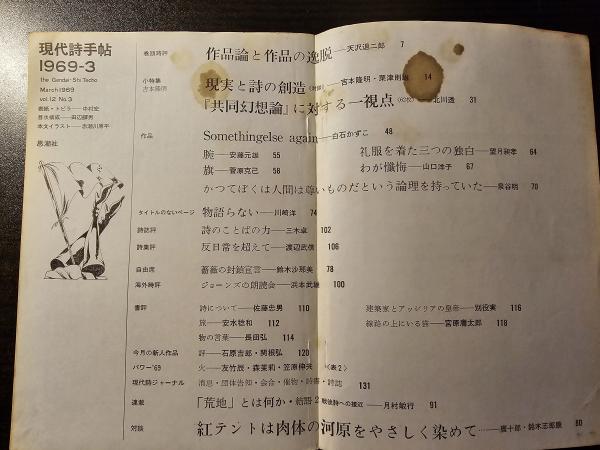 現代詩手帖
1969-3
the Gendai-Shi Techo
March 1969
vol.12 No.3
表紙・トビラ——中村宏
目次構成——田辺輝男
本文イラスト——赤瀬川原平
思潮社
巻頭時評 作品論と作品の逸脱——天沢退二郎 7
小特集 吉本隆明
現実と詩の創造(対談)——吉本隆明・粟津則雄 14
『共同幻想論』に対する一視点——北川透 31
作品 Somethingelse again——白石かずこ 48
腕——安藤元雄 55
礼服を着た三つの独白——望月昶孝 64
旗——菅原克己 58
わが懺悔——山口洋子 67
かつてぼくは人間は尊いものだという論理を持っていた——泉谷明 70
タイトルのないページ 物語らない——川崎洋 74
詩誌評 詩のことばの力——三木卓 102
詩集評 反日常を超えて——渡辺武信 106
自由席 薔薇の封鎖宣言——鈴木沙那美 78
海外時評 ジョーンズの朗読会——浜本武雄 100
書評 詩について——佐藤忠男 110
建築家とアッシリアの皇帝——別役実 116
旅——安水稔和 112
線路の上にいる猫——宮原庸太郎 118
物の言葉——長田弘 114
今月の新人作品 評——石原吉郎・関根弘 120
パワー'69 火——友竹辰・森茉莉・笠原伸夫 〈表2〉
現代詩ジャーナル 消息・団体告知・会合・催物・詩書・詩誌 131
連載 「荒地」とは何か・結語2 戦後詩への接近——月村敏行 91
対談 紅テントは肉体の河原をやさしく染めて……——唐十郎・鈴木志郎康 80